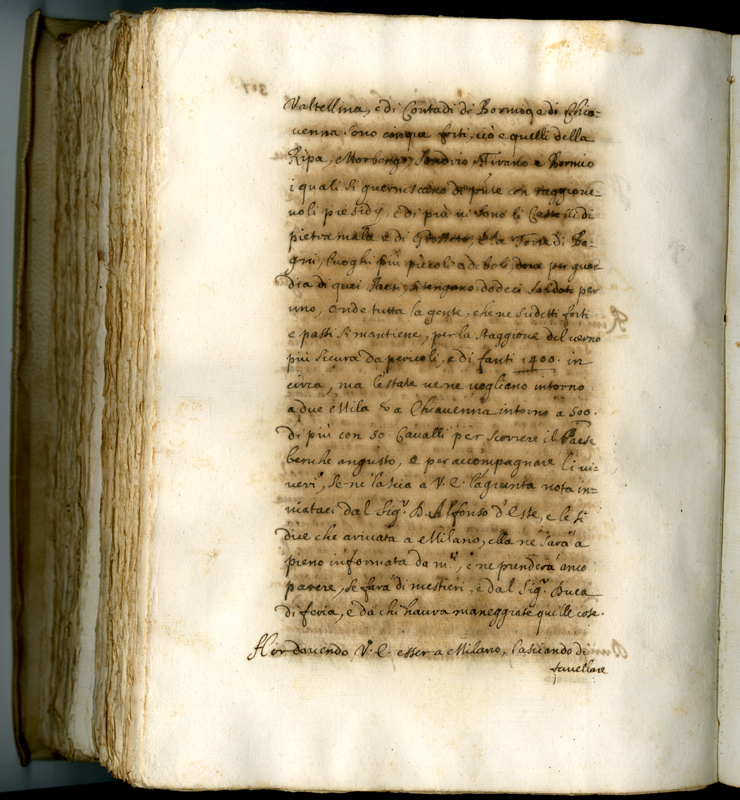 Valtellina, e di Contadi di Bormio, e di Chia-
uenna sono cinque forti, ciò e quelli della
Ripa, Morbegno, Sondrio, Tirano e Bormio
i quali si guerniscano di p'nte con raggione-
uoli presidij, e di più ui sono li Castelli di
pietra mala e di Grosseto, e la Torre di Ba-
gni, luoghi più piccoli a deboli, doue per guar
dia di quei Paesi, si tengano dodeci soldati per
uno, onde tutta la gente, che ne sudetti forti
e posti si mantiene, per la staggione del uerno
più sicura da pericoli, e di fanti 1400. in
circa, ma l'estate ue ne uogliano intorno
a due Mila & a Chiauenna intorno a 500.
di più con 50. Caualli per scorrere il Paese
benche angusto, e per accompagnare li ui-
ueri, se ne lascia a V. E. l'agiunta nota in-
uiataci dal Sig.r D. Alfonso d'Este, e le si
dice che arriuata a Milano, ella ne sarà a
pieno informata da m.i, e ne prenderà anco
parere, se farà di mestieri, e dal Sig.r Duca
di feria, e da chi haura maneggiate quelle cose.
Hor douendo V. E. esser a Milano, lasciando di
fauellare